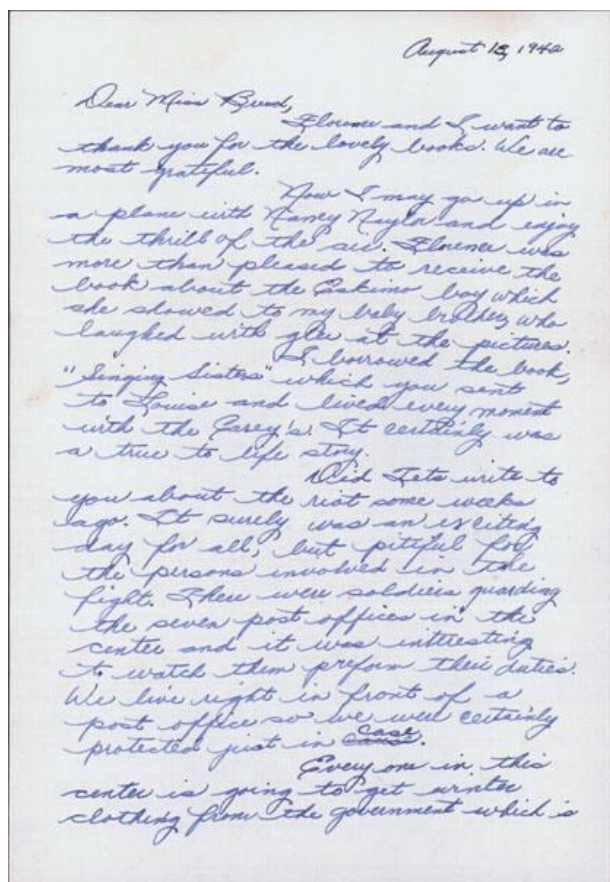 August 13, 1942
Dear Miss Breed,
Florence and I want to
thank you for the lovely books. We are
most grateful.
Now I may go up in
a plane with Nancy Naylor and enjoy
the thrill of the air. Florence was
more than pleased to receive the
book about the Eskimo boy which
she showed to my baby brother, who
laughed with glee at the pictures.
I borrowed the book,
"Singing Sisters" which you sent
to Louise and lived every moment
with the Carey's. It certainly was
a true to life story.
Did Tets write to
you about the riot some weeks
ago. It surely was an exciting
day for all, but pitiful for
the persons involved in the
fight. There were soldiers guarding
the seven post offices in the
center and it was interesting
to watch them preform their duties.
We live right in front of a
post office so we were certainly
protected just in case.
Every one in this
center is going to get winter
clothing from the government which is